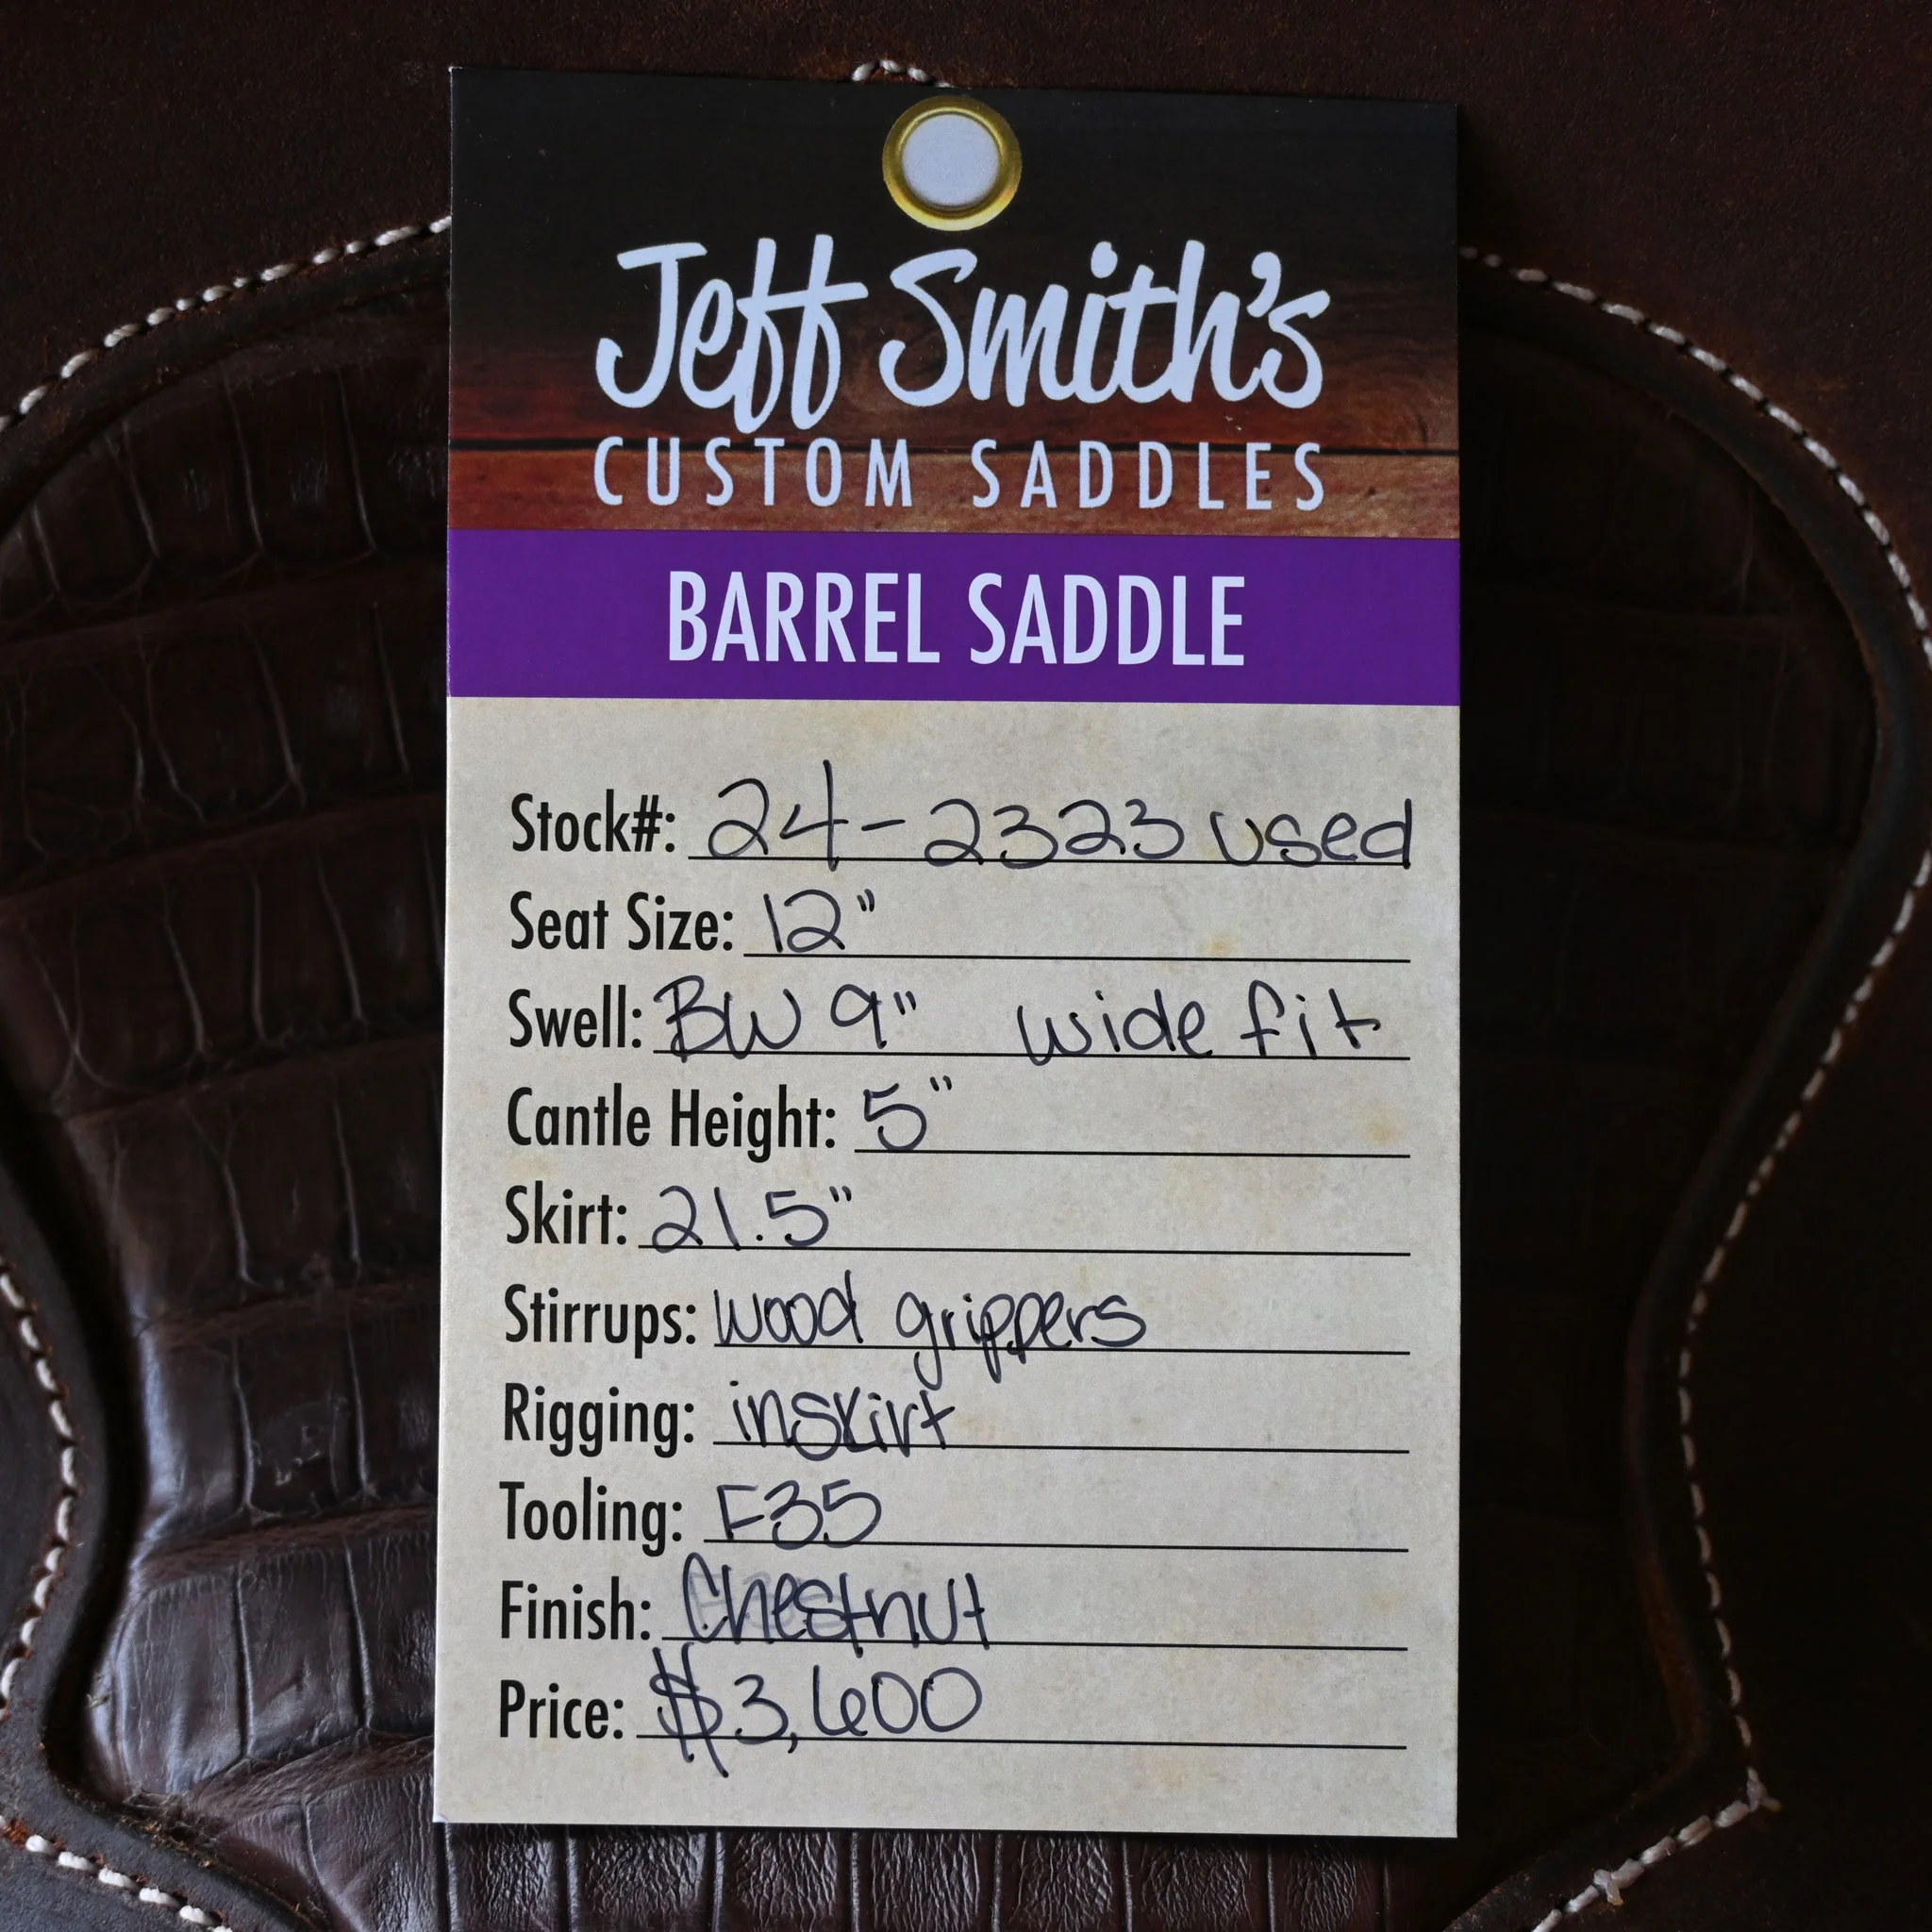 Jeff Smith's
CUSTOM SADDLES
BARREL SADDLE
Stock#: 24-2323 used
Seat Size: 12"
Swell: BW 9" wide fit
Cantle Height: 5"
Skirt: 21.5"
Stirrups: wood grippers
Rigging: inskirt
Tooling: F35
Finish: Chestnut
Price: $3,600